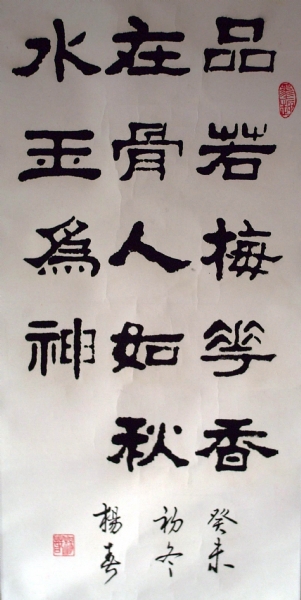 品若梅花香
在骨人如秋
水玉為神
癸未
初冬
楊春